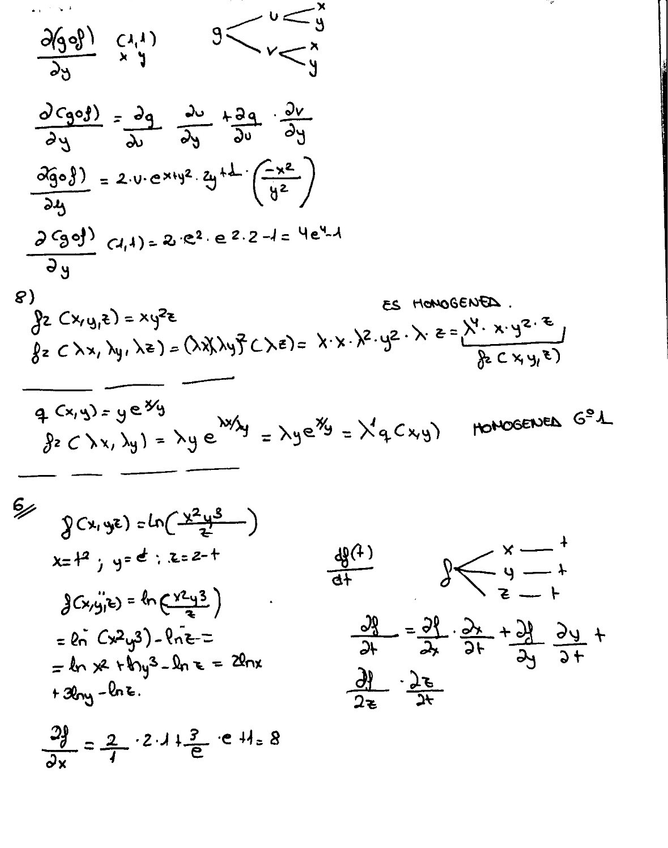 ∂(gof) (1,1)
∂y x y
g u x y
v x y
∂(gof)/∂y = ∂g/∂u ∂u/∂y + ∂g/∂u · ∂v/∂y
∂(gof)/∂y = 2·u·e^x+y²·2y+1·(-x²/y²)
∂(gof)/∂y (1,1) = 2·e²·e²·2-1 = 4e⁴-1
8)
f2 (x,y,z) = xy²z
ES HOMOGENEA.
f2 (λx, λy, λz) = (λx)(λy)²(λz) = λ·x·λ²·y²·λ·z = λ⁴·x·y²·z
f2 (x,y,z)
g (x,y) = y e^x/y
f2 (λx, λy) = λy e^λx/λy = λy e^x/y = λ¹ g (x,y) HOMOGENEA Gº1
6//
f(x,y,z) = ln(x²y³/z)
x=t² ; y=eᵗ ; z=2-t
df(t)/dt
f x — t
y — t
z — t
f(x,y,z) = ln(x²y³/z)
= ln (x²y³) - ln z =
= ln x² + ln y³ - ln z = 2lnx
+ 3lny - lnz.
∂f/∂t = ∂f/∂x · ∂x/∂t + ∂f/∂y ∂y/∂t +
∂f/∂z · ∂z/∂t
∂f/∂x = 2/1 · 2·1 + 3/e · e + 1 = 8